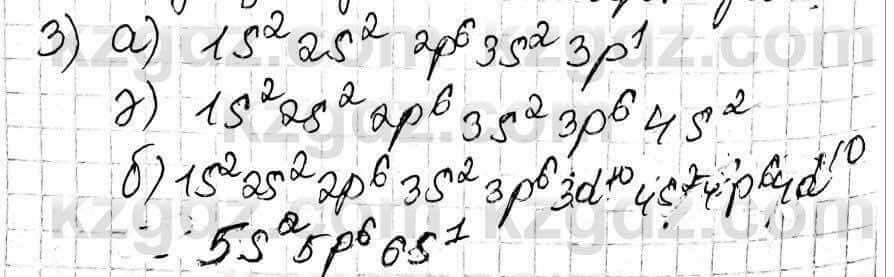 3) а) 1s² 2s² 2p⁶ 3s² 3p¹
ә) 1s² 2s² 2p⁶ 3s² 3p⁶ 4s²
б) 1s² 2s² 2p⁶ 3s² 3p⁶ 3d¹⁰ 4s² 4p⁶ 4d¹⁰
5s² 5p⁶ 6s¹